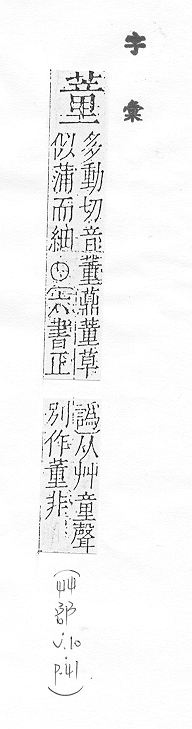 字彙
蕫
多動切音董薡蕫草
似蒲而細○六書正
譌从艸童聲
別作董非
(艸部 v.10 p.41)